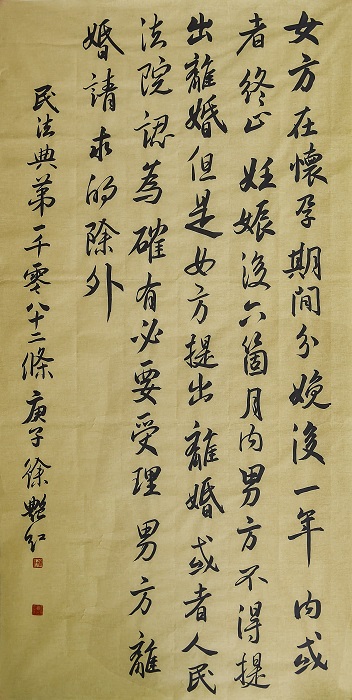 女方在懷孕期間分娩後一年內或
者終止妊娠後六箇月內男方不得提
出離婚但是女方提出離婚或者人民
法院認為確有必要受理男方離
婚請求的除外
民法典第一千零八十二條庚子徐艷紅